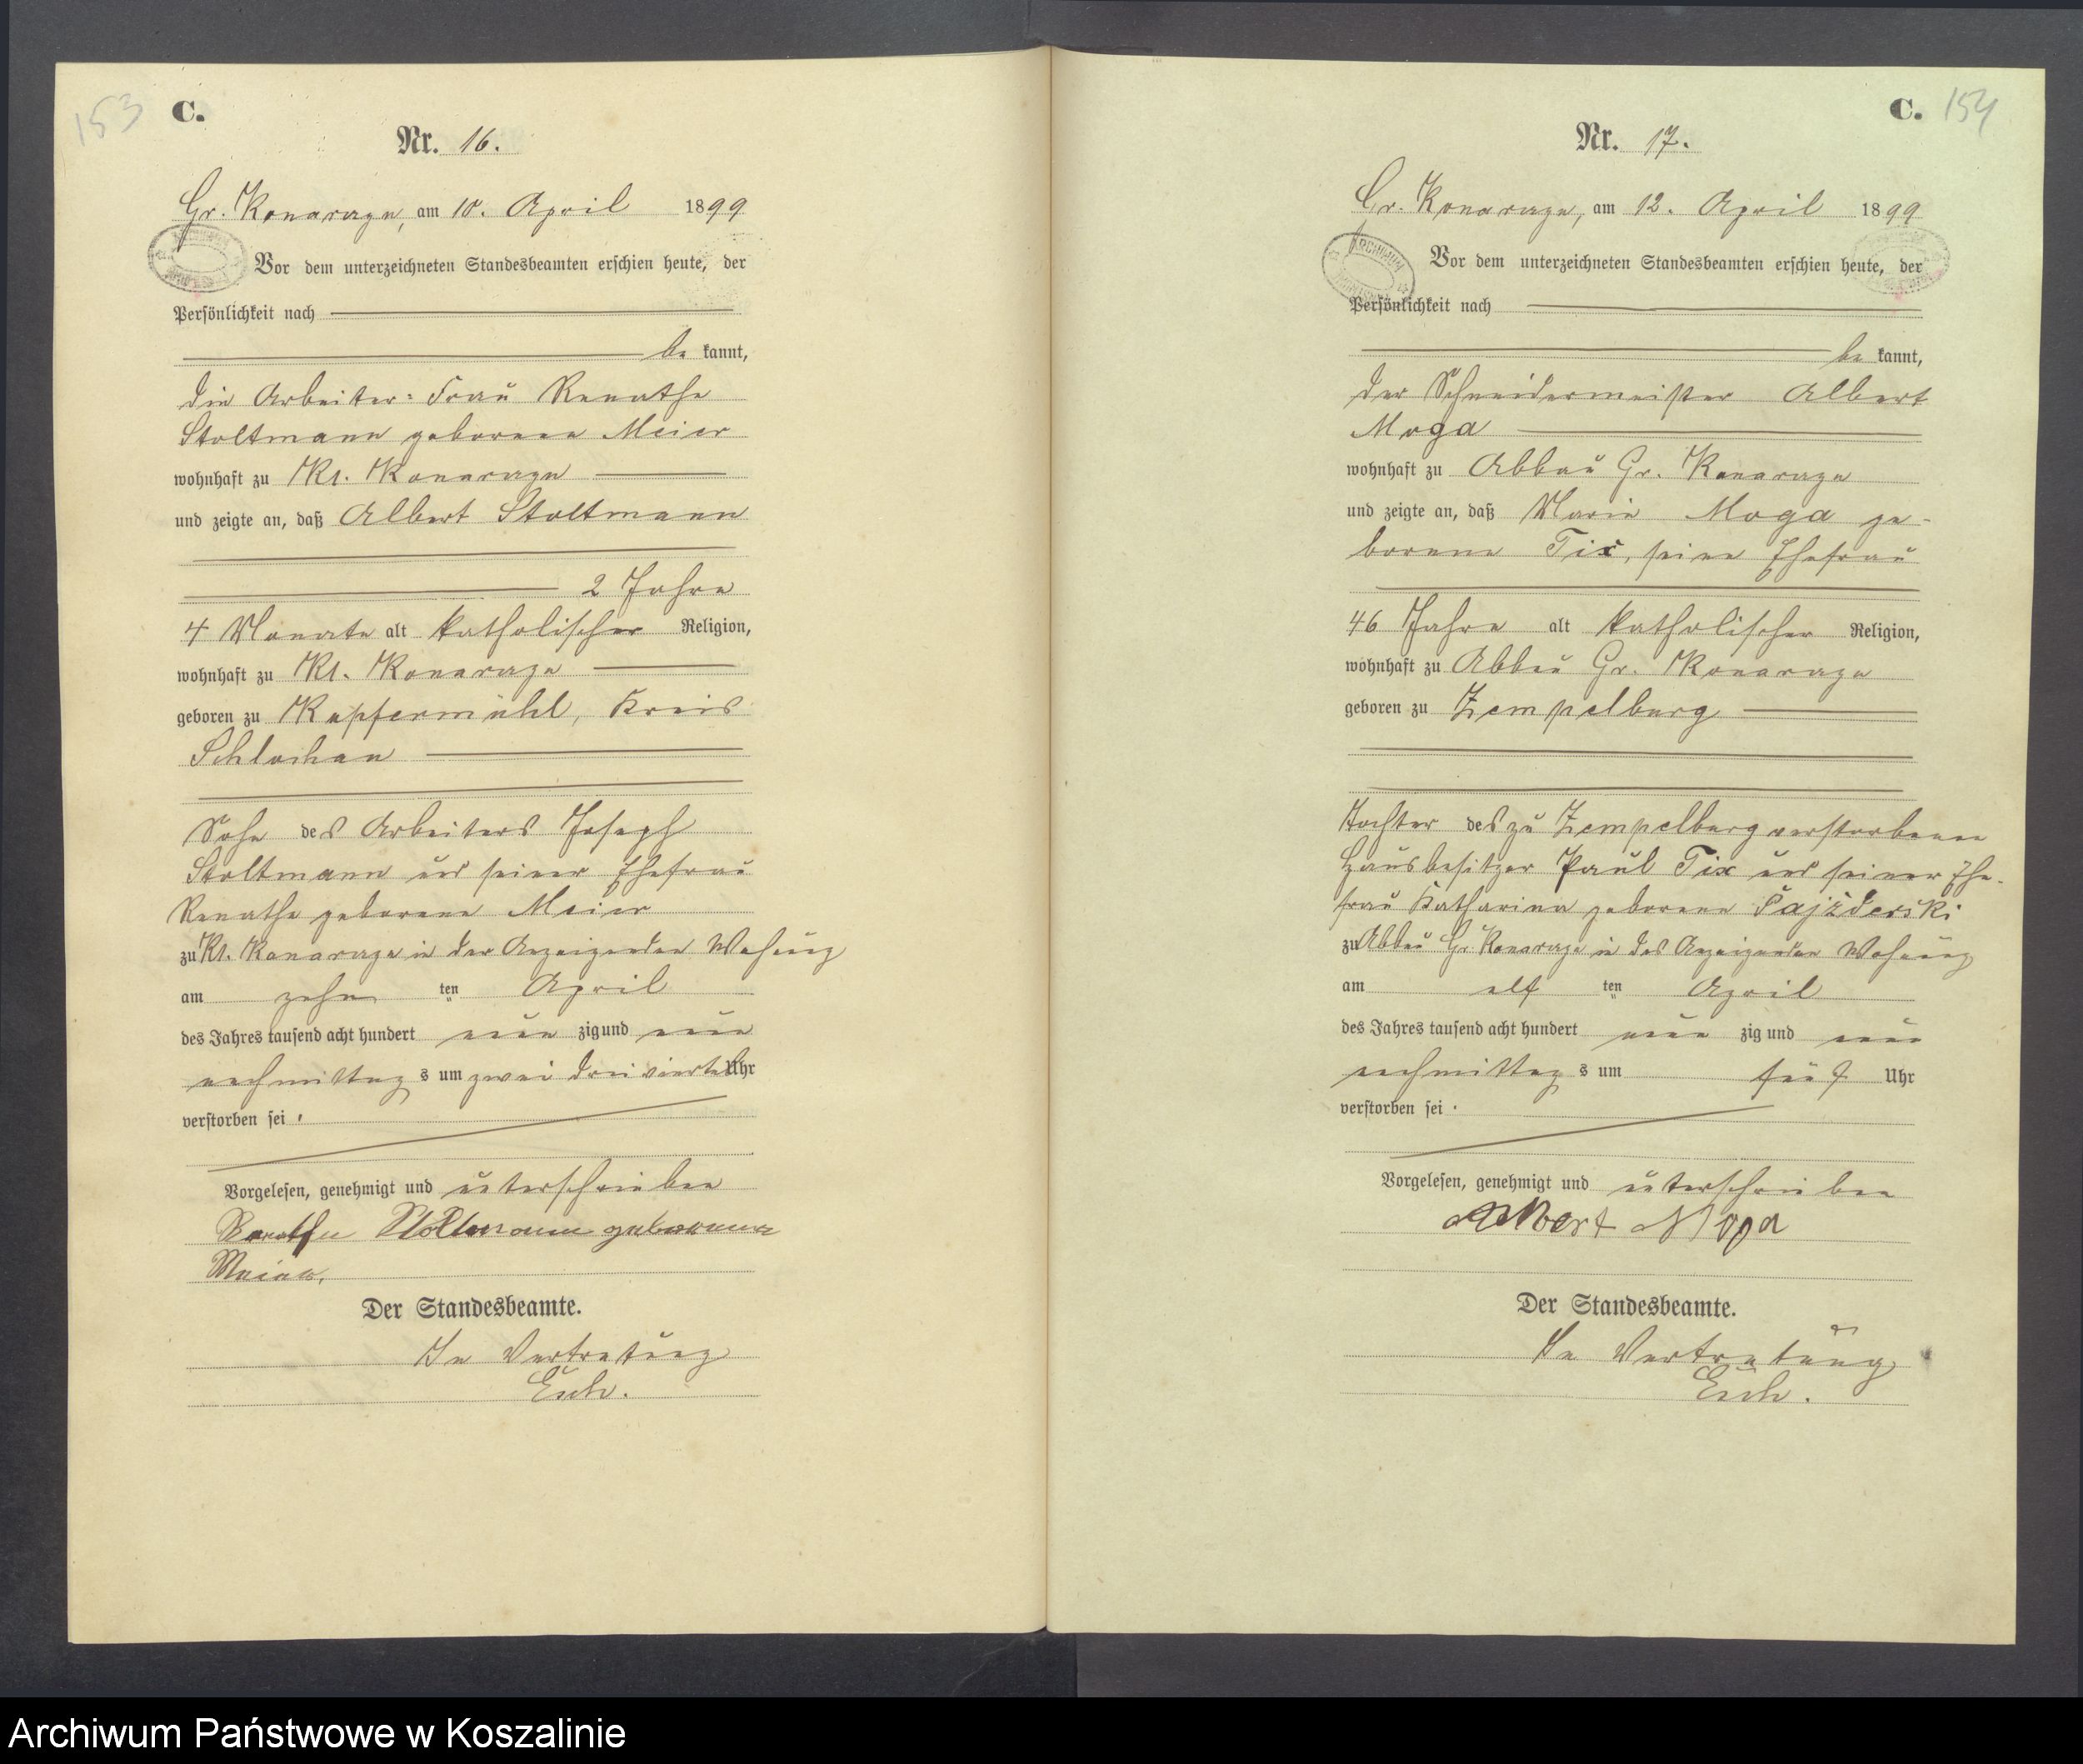 153
C.
Nr. 16.
Gr. Konarzyn, am 10. April 1899
Vor dem unterzeichneten Standesbeamten erschien heute, der
Persönlichkeit nach
be kannt,
die Arbeiter-Frau Renathe
Stoltmann geborene Meier
wohnhaft zu Kl. Konarzyn
und zeigte an, daß Albert Stoltmann
2 Jahre
4 Monate alt katholischer Religion,
wohnhaft zu Kl. Konarzyn
geboren zu Kupfermühl, Kreis
Schlochau
Sohn des Arbeiters Joseph
Stoltmann und seiner Ehefrau
Renathe geborene Meier
zu Kl. Konarzyn in der Anzeigenden Wohnung
am zehn ten April
des Jahres tausend acht hundert neun zig und neun
nachmittag s um zwei dreiviertel Uhr
verstorben sei.
Vorgelesen, genehmigt und unterschrieben
Renathe Stoltmann geborenne
Meier.
Der Standesbeamte.
In Vertretung
154
C.
Nr. 17.
Gr. Konarzyn, am 12. April 1899
ARCHIWUM
Vor dem unterzeichneten Standesbeamten erschien heute, der
Persönlichkeit nach
be kannt,
der Schneidermeister Albert
Moga
wohnhaft zu Abbau Gr. Konarzyn
und zeigte an, daß Marie Moga ge-
borene Tix, seine Ehefrau
46 Jahre alt katholischer Religion,
wohnhaft zu Abbau Gr. Konarzyn
geboren zu Zempelburg
Tochter des zu Zempelburg verstorbenen
Hausbesitzer Paul Tix und seiner Ehe-
frau Katharina geborene Pajzderski
zu Abbau Gr. Konarzyn in des Anzeigenden Wohnung
am elf ten April
des Jahres tausend acht hundert neun zig und neun
nachmittag s um fünf Uhr
verstorben sei.
Vorgelesen, genehmigt und unterschrieben
Albert Moga
Der Standesbeamte.
In Vertretung
Archiwum Państwowe w Koszalinie